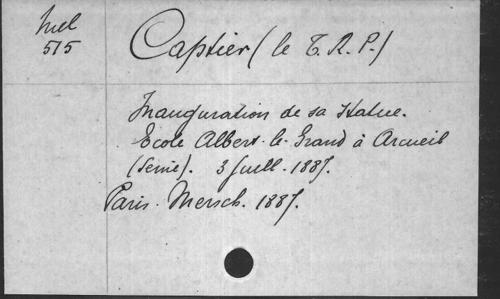 Mel
515
Captier (le T. R. P.)
Inauguration de sa Statue.
Ecole Albert-le-Grand à Arcueil
(Seine). 3 Juill. 1887.
Paris. Mersch. 1887.